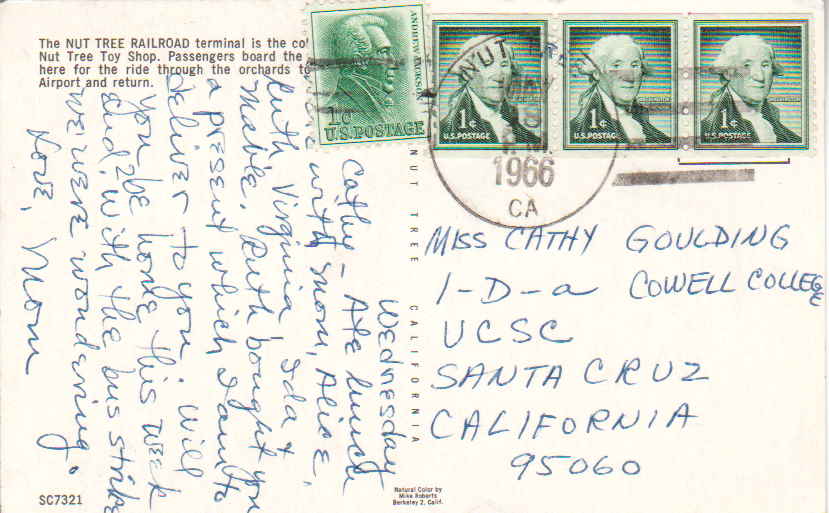 The NUT TREE RAILROAD terminal is the
Nut Tree Toy Shop. Passengers board the
here for the ride through the orchards to
Airport and return.
ANDREW JACKSON
1¢
U.S. POSTAGE
1¢
U.S. POSTAGE
1¢
U.S. POSTAGE
1¢
U.S. POSTAGE
NUT TREE
8
P.M.
1966
CA
Wednesday
Cathy - Ate lunch
with mom, Alice,
Ruth Virginia Ida &
Mable. Ruth bought you
a present which I am to
deliver to you. Will
you be home this week
end. With the bus strike
we were wondering.
Love, Mom
NUT TREE CALIFORNIA
MISS CATHY GOULDING
1-D-a COWELL COLLEGE
UCSC
SANTA CRUZ
CALIFORNIA
95060
SC7321
Natural Color by
Mike Roberts
Berkeley 2, Calif.